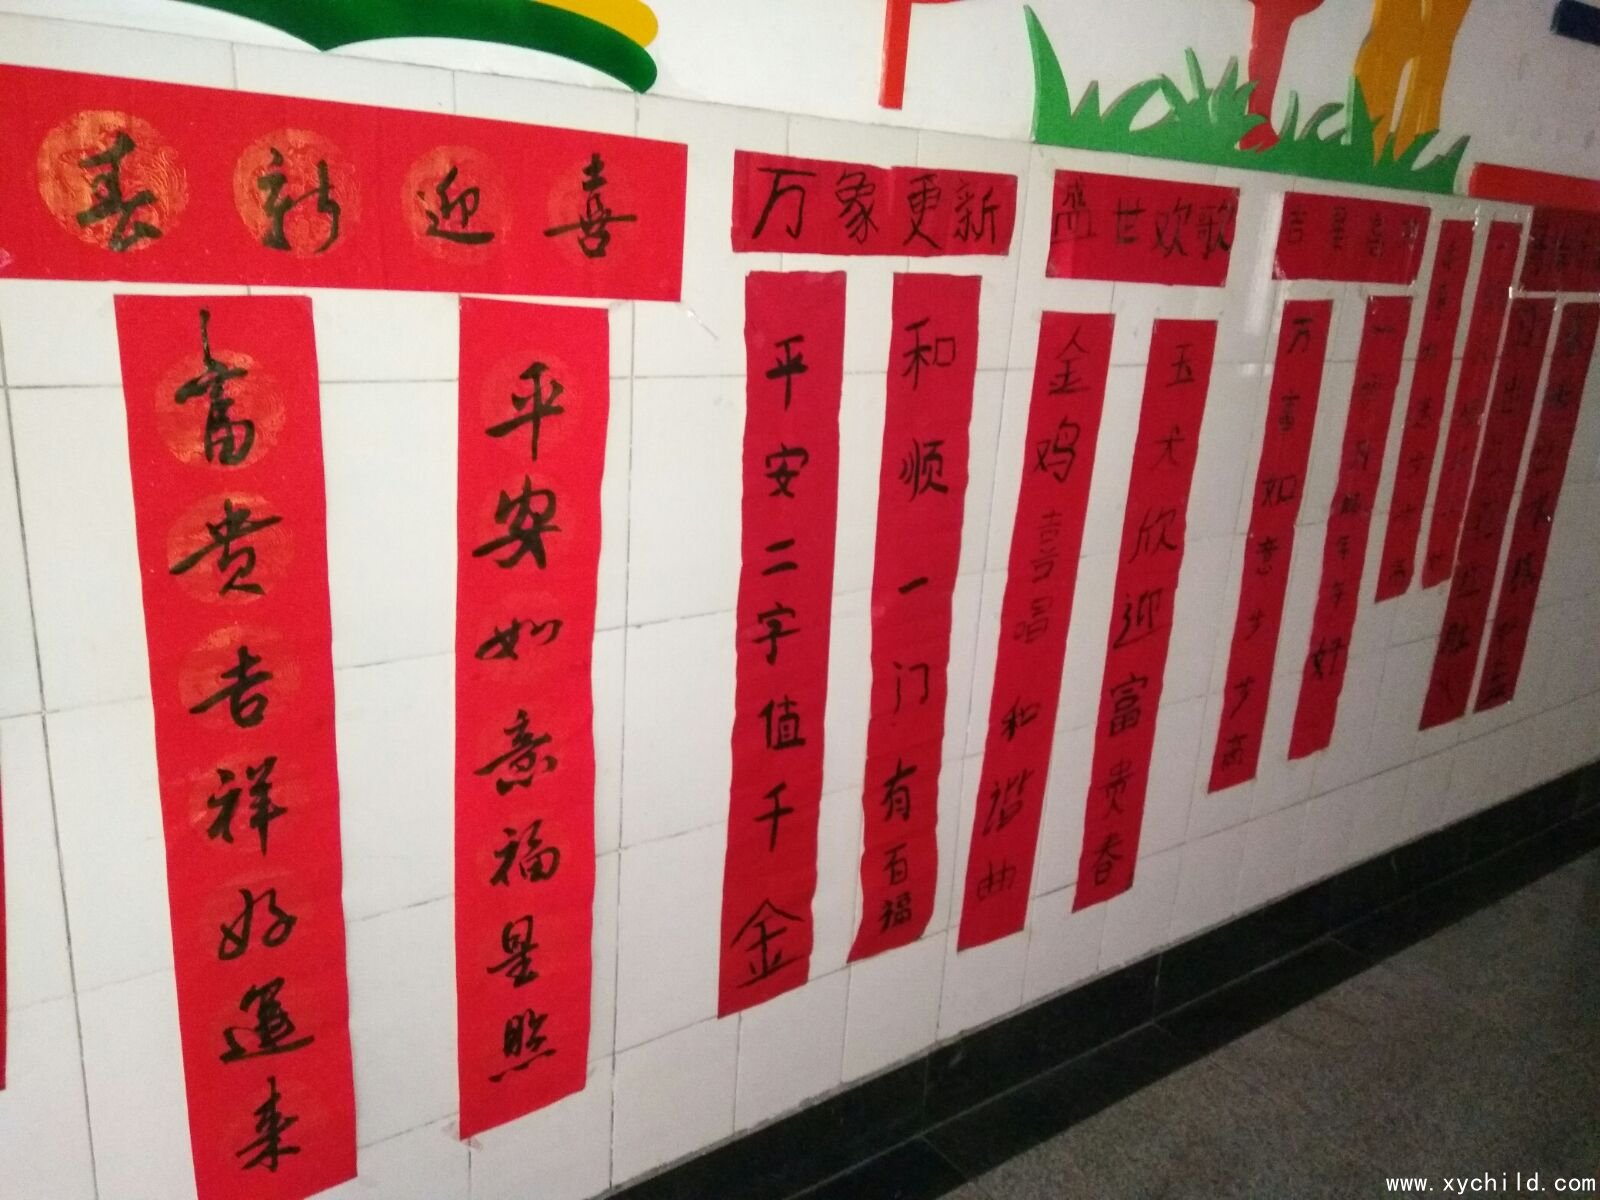 春新迎喜
富贵吉祥好运来
平安如意福星照
万象更新
平安二字值千金
和顺一门有百福
盛世欢歌
金鸡喜唱和谐曲
玉犬欣迎富贵春
吉星高
万事如意步步高
一帆风顺年年好
www.xychild.com